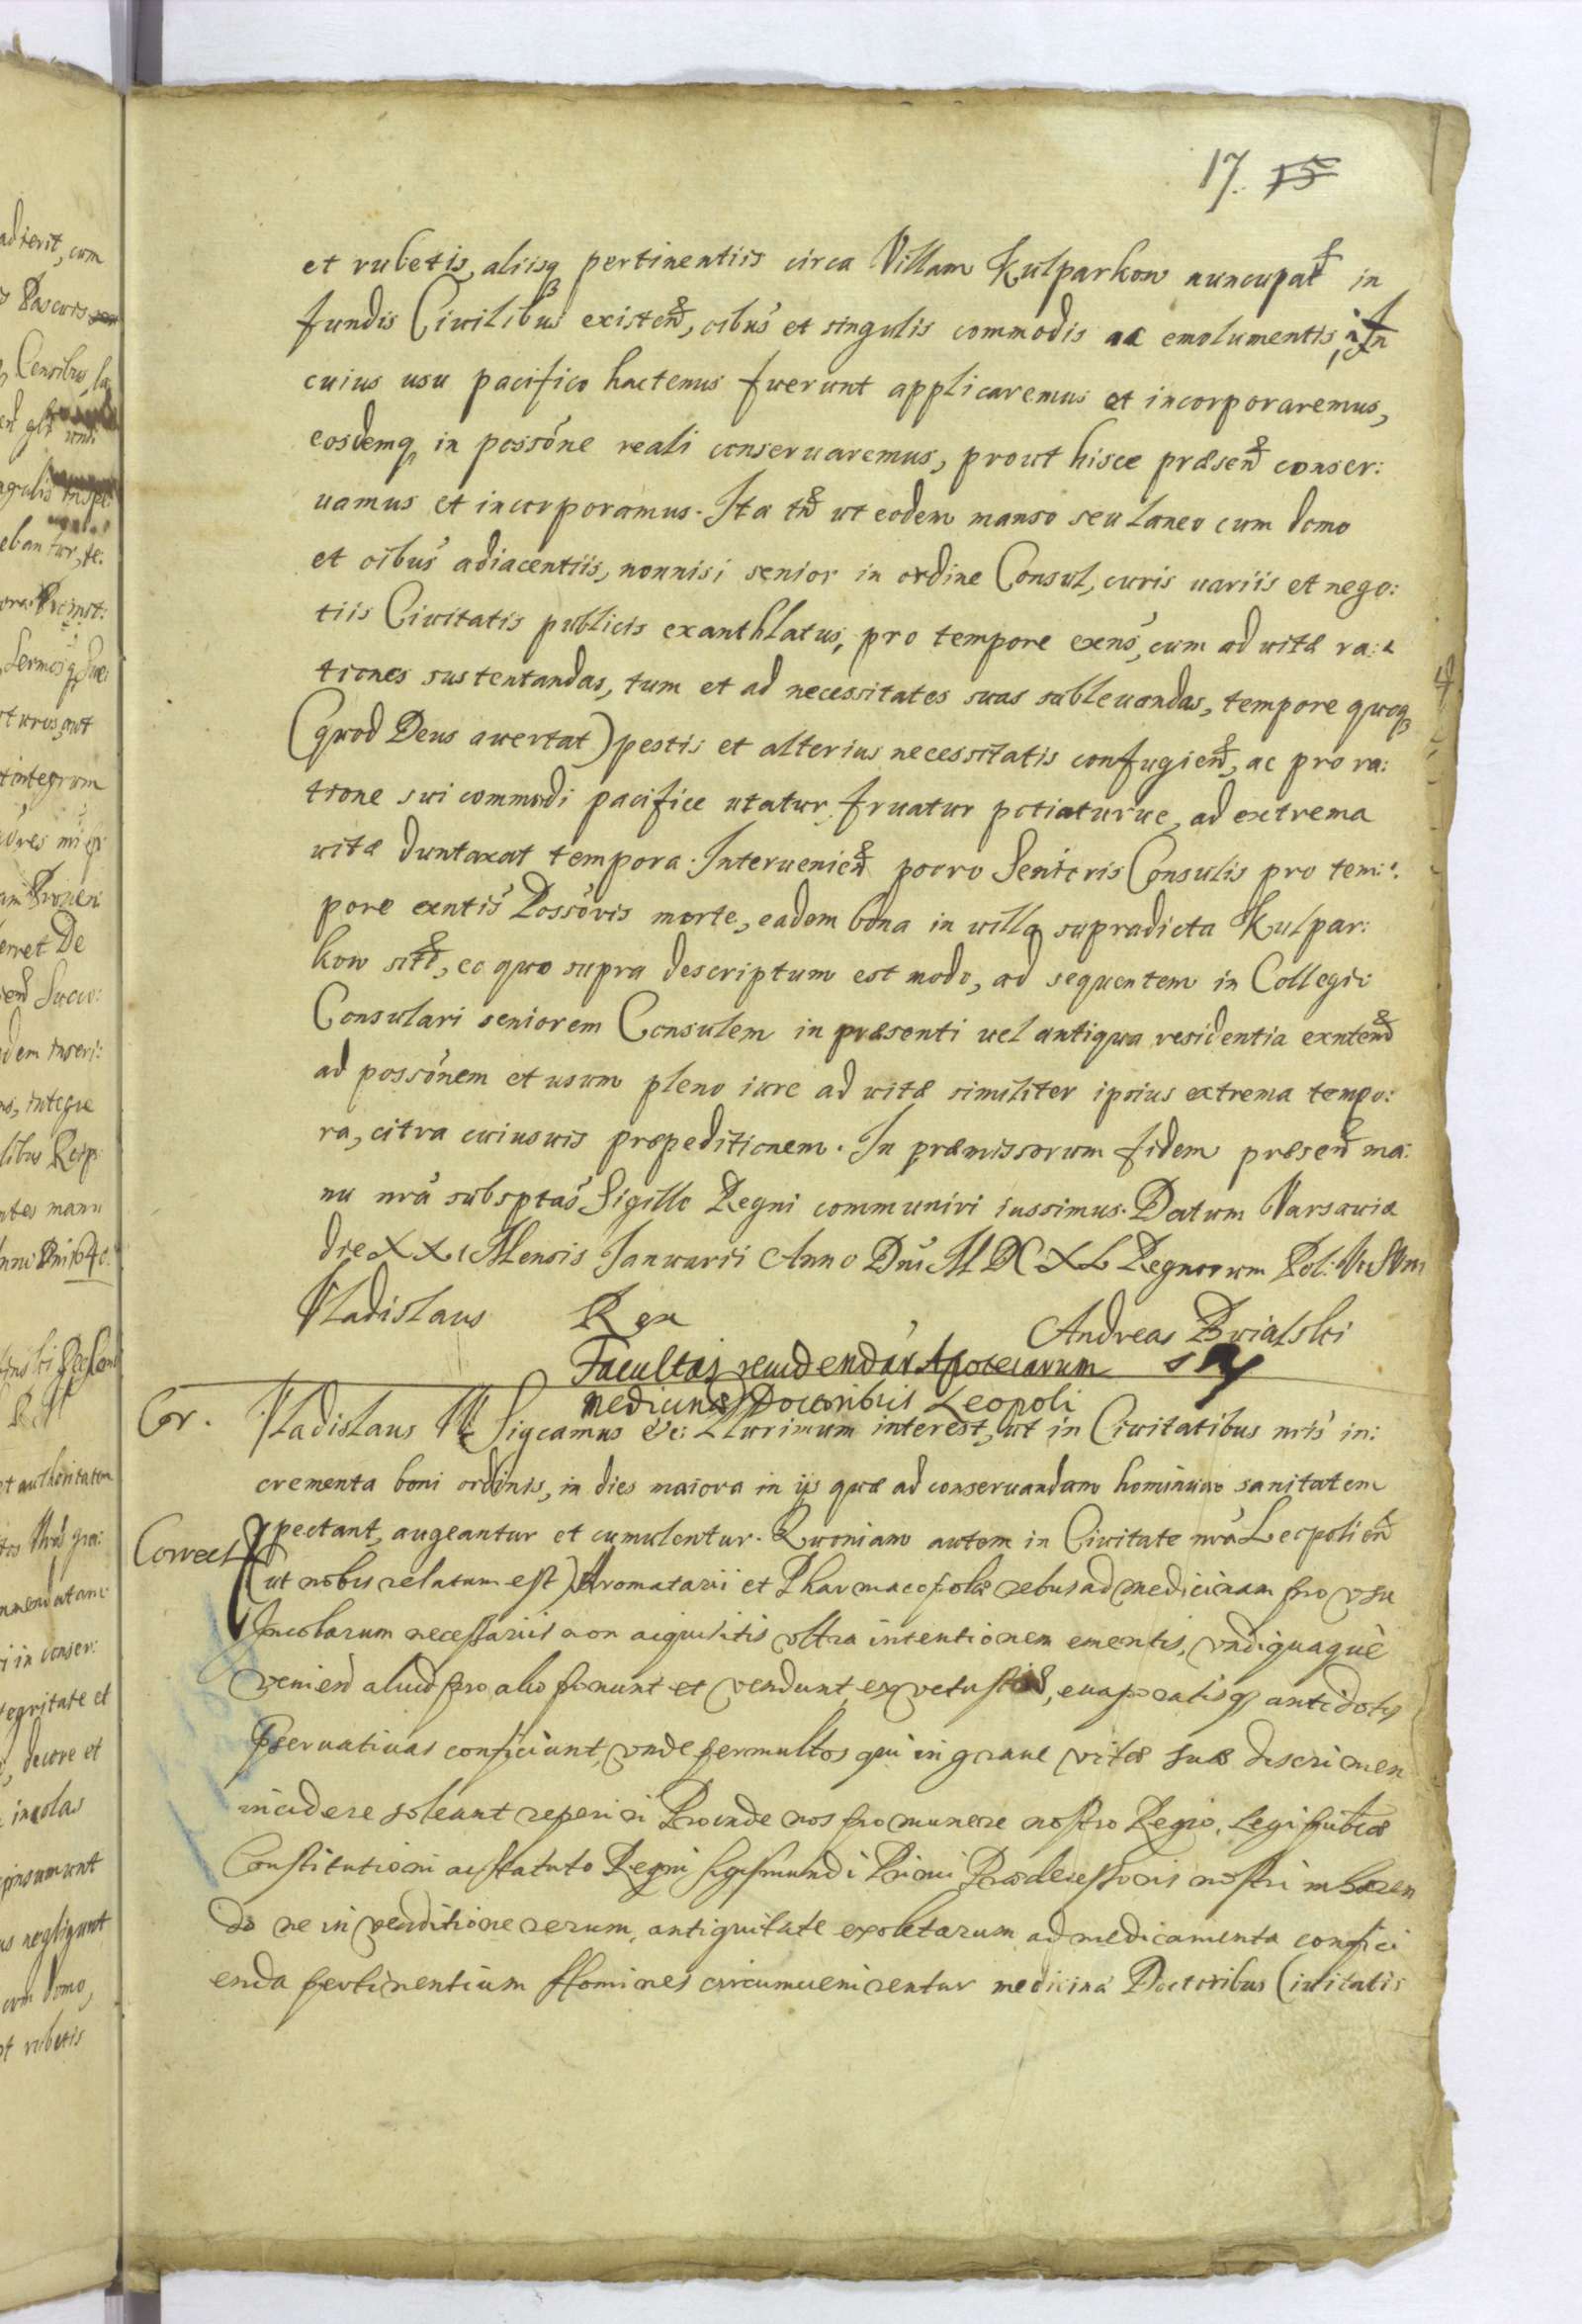 17. 15
et rubetis, aliisq pertinentiis circa Villam Kulparkow nuncupat in
fundis Ciuilibus existen, oibus et singulis commodis ac emolumentis, in
cuius usu pacifico hactenus fuerunt applicaremus et incorporaremus,
eosdemq in possone reali conseruaremus, prout hisce præsen conser:
uamus et incorporamus. Ita tn ut eodem manso seu laneo cum domo
et oibus adiacentiis, nonnisi senior in ordine Consul, curis uariis et nego:
tiis Ciuitatis publicis exanthlatus, pro tempore exns, cum ad uitæ ra:
tiones sustentandas, tum et ad necessitates suas subleuandas, tempore quoq
(quod Deus auertat) pestis et alterius necessitatis confugien, ac pro ra:
tione sui commodi pacifice utatur, fruatur potiaturue, ad extrema
uitæ duntaxat tempora. Interuenien porro Senioris Consulis pro tem:
pore exntis Possoris morte, eadem bona in uilla supradicta Kulpar:
kow sit, eo quo supra descriptum est modo, ad sequentem in Collegio
Consulari seniorem Consulem in præsenti uel antiqua residentia exnten
ad possonem et usum pleno iure ad uitæ similiter ipsius extrema tempo:
ra, citra cuiusuis præpeditionem. In præmissorum fidem præsen ma:
nu nra subsptas Sigillo Regni communiri iussimus. Datum Varsauiæ
die XX Mensis Januarii Anno Dni M DC XL Regnorum Pol:
Vladislaus Rex
Andreas
Facultas Apotecarum
medicinæ Doctoribus Leopoli
Cor. Vladislaus IV Significamus &c: Plurimum interest, ut in Ciuitatibus nris in:
crementa boni ordinis, in dies maiora in ijs quæ ad conseruandam hominum sanitatem
Correct spectant, augeantur et cumulentur. Quoniam autem in Ciuitate nra Leopolien
(ut nobis relatum est) Aromatarii et Pharmacopolæ rebus ad medicinam pro vsu
Incolarum necessariis non aequisitis vltra intentionem ementis, vndiquaque
venien aliud pro alio ponunt et vendunt, ex vetustis, euaporatisq antidotis
pseruatiuas conficiunt, vnde permultos qui in graue vitæ suæ discrimen
incidere soleant reperiri Proinde nos pro munere nostro Regio, Legi publicæ
Constitutioni ac statuto Regni Sigismundi Primi Prædecessoris nostri inhæren
do ne in venditione rerum, antiquitate exoletarum ad medicamenta confici
enda pertinentium homines circumuenirentur medicinæ Doctoribus Ciuitatis